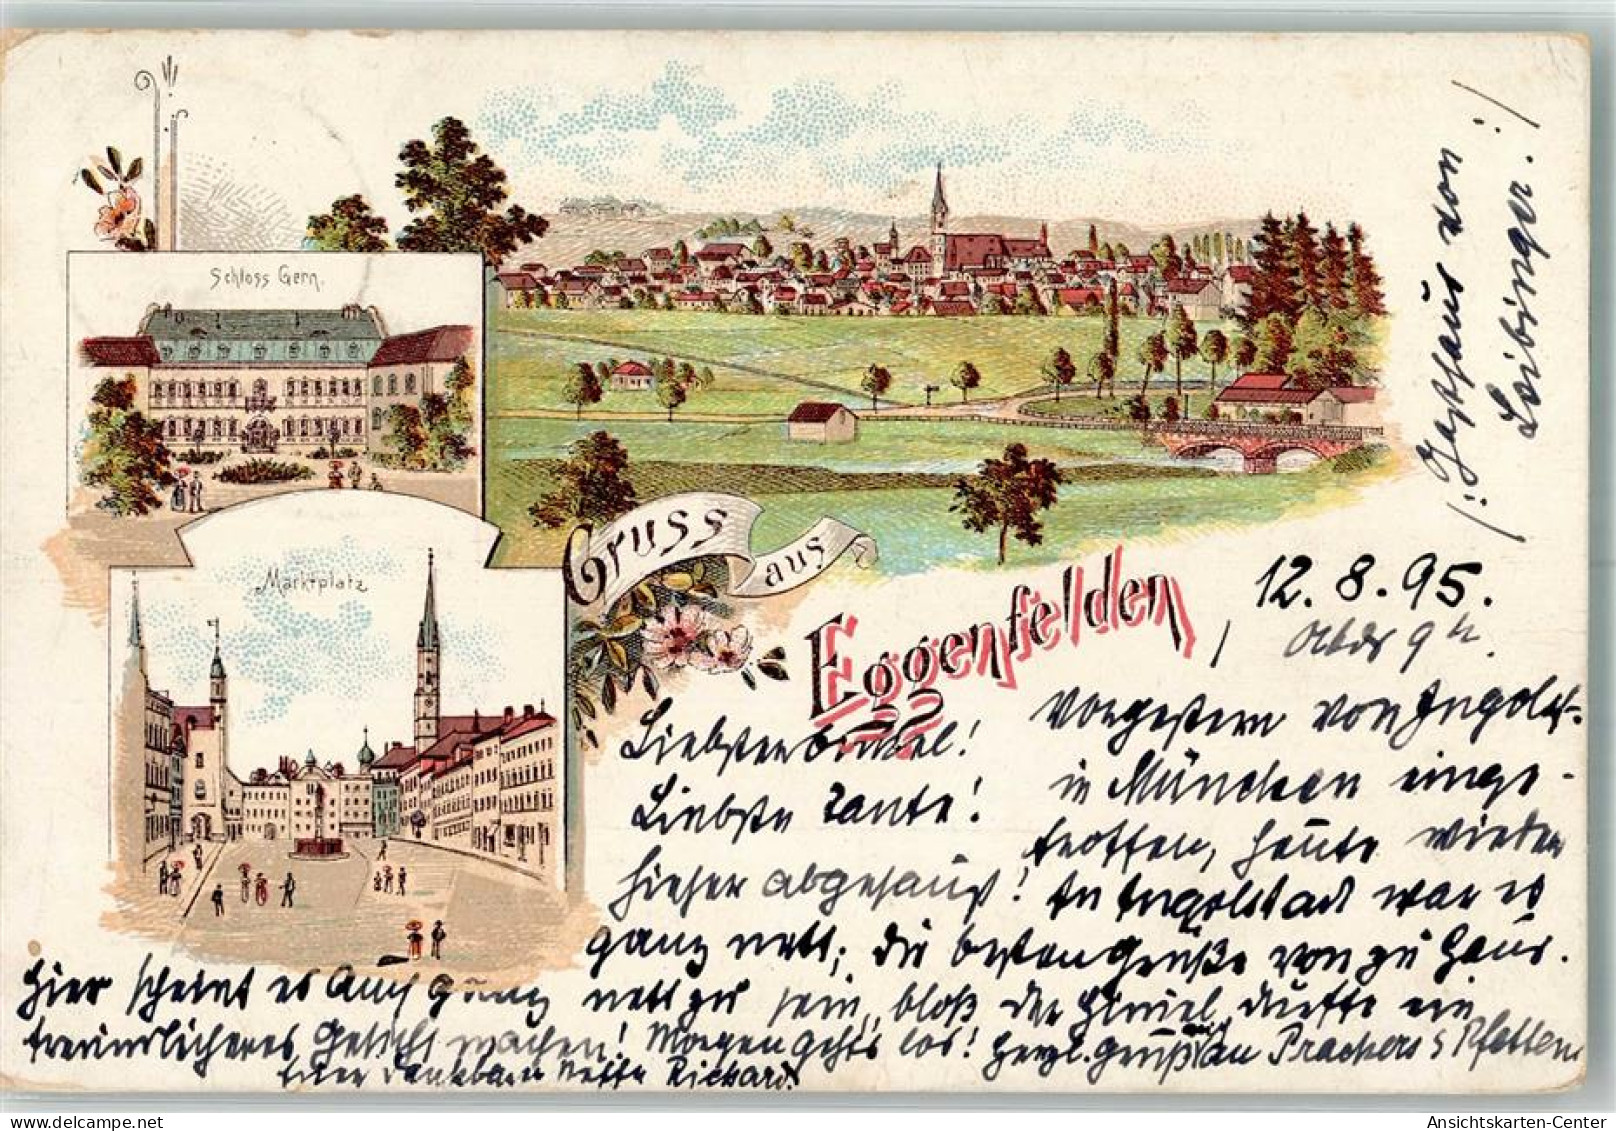 Schloss Gern.
Marktplatz
Gruss
aus
Eggenfelden
/: Gasthaus von
Leibinger. :/
12. 8. 95.
9 h.
Liebster Onkel!
Liebste Tante!
Vorgestern von Ingolst-
in München einge-
troffen, heute wieder
hieher abgehaust! In Ingolstadt war es
ganz nett; die besten Grüße von zu Haus.
Hier scheint es auch ganz nett zu sein, bloß der Himmel dürfte ein
freundlicheres Gesicht machen! Morgen geht's los! Herzl. Grüße an
Euer dankbarer Neffe Richard.
Ansichtskarten-Center